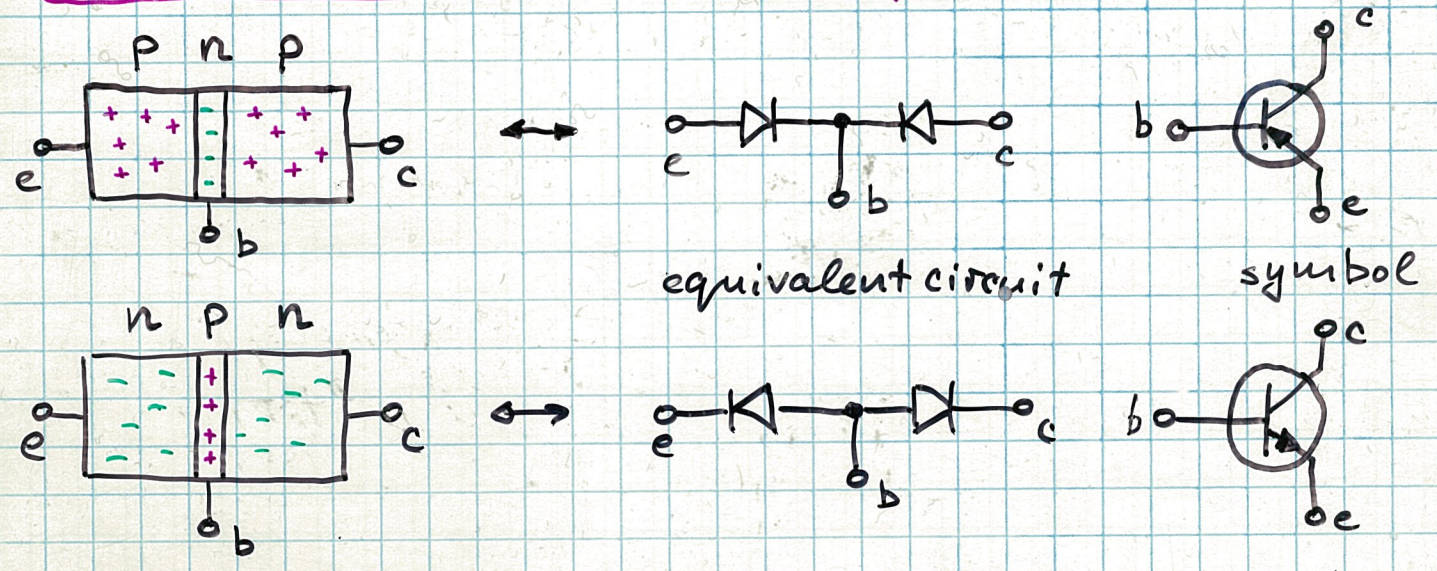 p n p
e
c
b
e
c
b
b
c
e
equivalent circuit
symbol
n p n
e
c
b
e
c
b
b
c
e